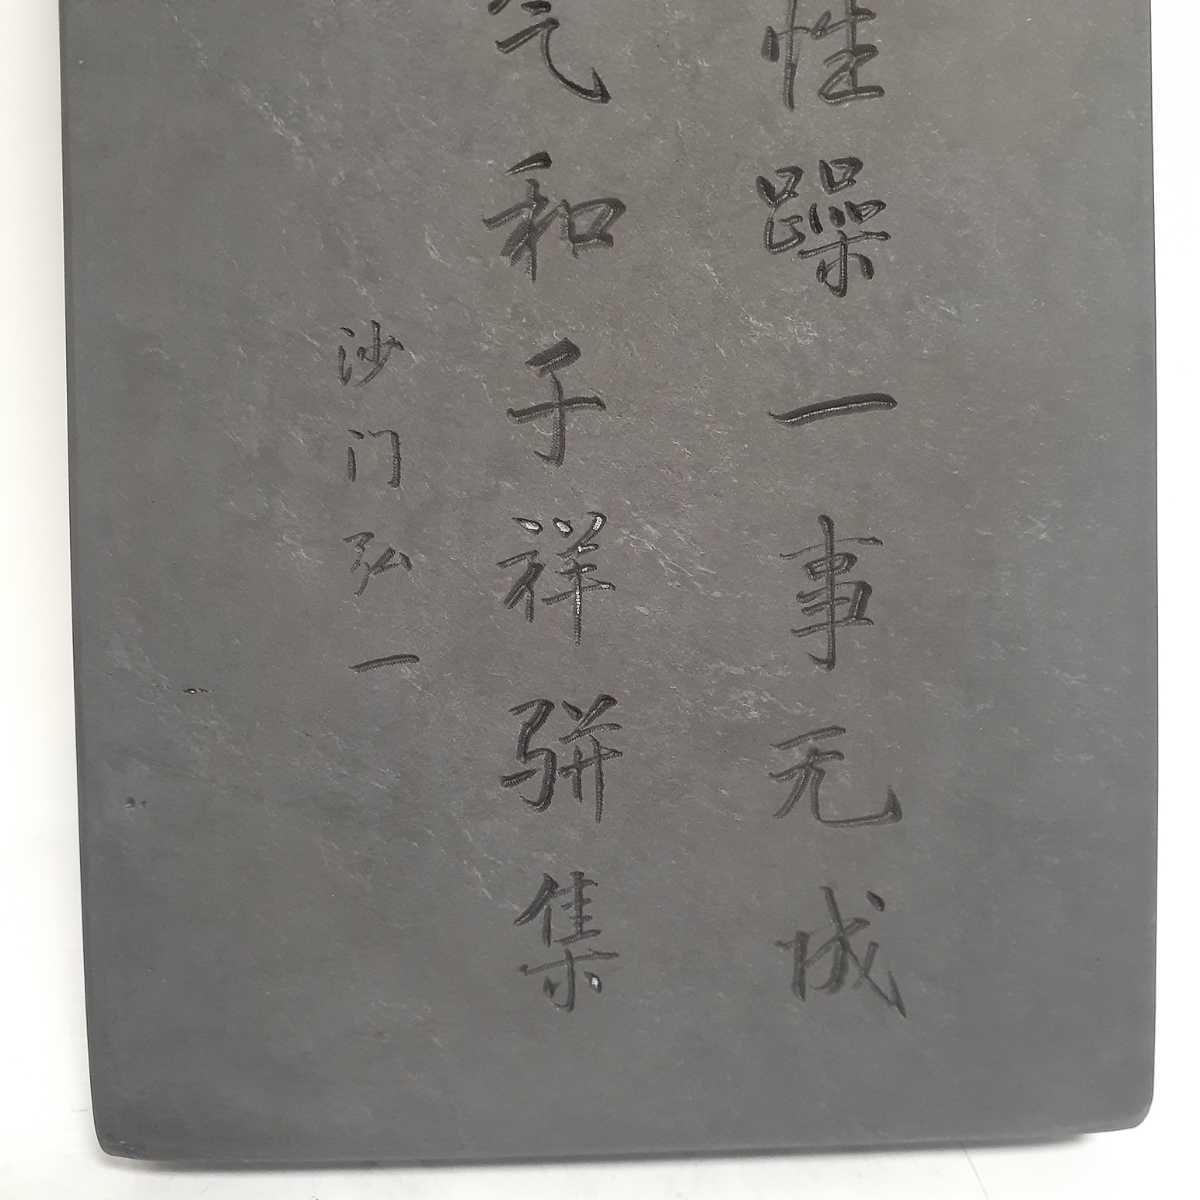 性躁一事无成
气和子祥骈集
沙门弘一